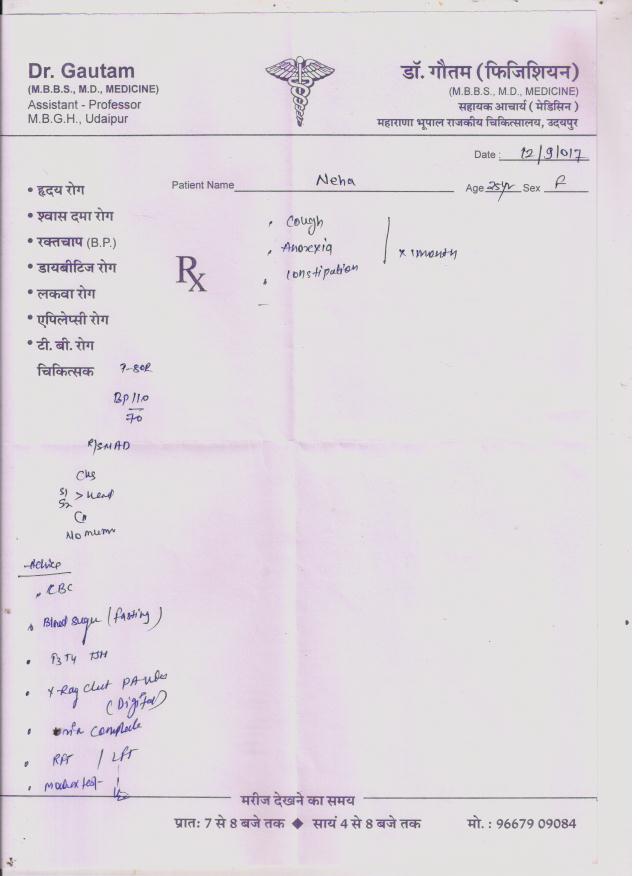 Dr. Gautam
(M.B.B.S., M.D., MEDICINE)
Assistant - Professor
M.B.G.H., Udaipur
डॉ. गौतम (फिजिशियन)
(M.B.B.S., M.D., MEDICINE)
सहायक आचार्य ( मेडिसिन )
महाराणा भूपाल राजकीय चिकित्सालय, उदयपुर
Date : 12/9/017
Patient Name Neha Age 25yr Sex F
• हृदय रोग
• श्वास दमा रोग
• रक्तचाप (B.P.)
• डायबीटिज रोग
• लकवा रोग
• एपिलेप्सी रोग
• टी. बी. रोग
चिकित्सक
Rx
• Cough
• Anorexia
• Constipation
x 1 month
BP 110
70
R/S NAD
S1
S2 > Head
No murm
Advice
• CBC
• Blood Sugar (fasting)
• T3 T4 TSH
• X-Ray Chest PA View
(Digital)
• Complete
• RFT / LFT
• Montox test
मरीज देखने का समय
प्रातः 7 से 8 बजे तक ◆ सायं 4 से 8 बजे तक मो. : 96679 09084